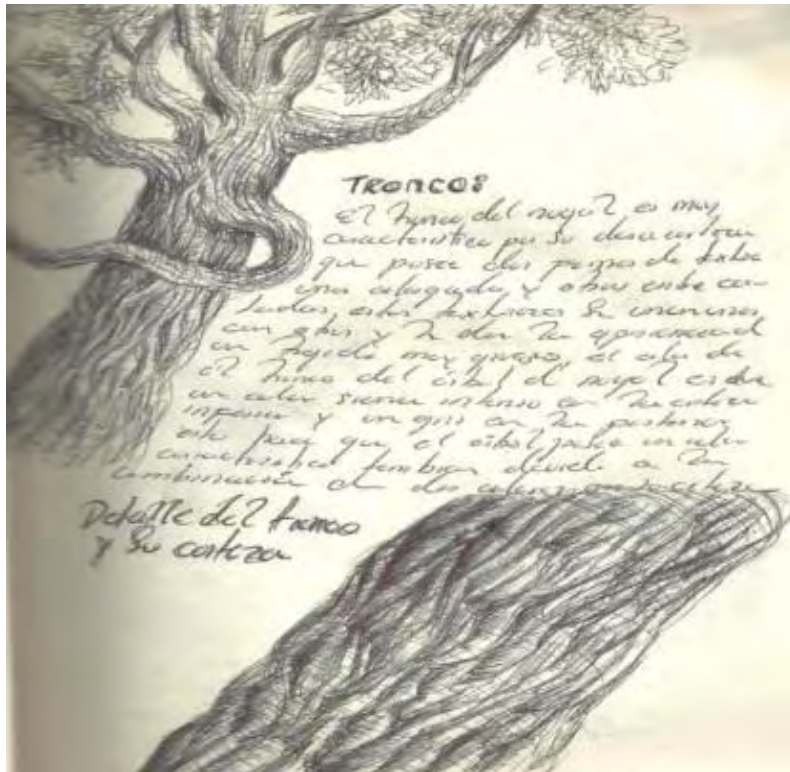 TRONCOS
El tronco del nogal es muy
característico por su dura corteza
que posee dos formas de textura
una alargada y otras entre cor
tadas, estas texturas se
con gris y le dan la apariencia d
un tejido muy grueso, el color de
el tronco del árbol el nogal es de
un color siena intenso en la corteza
inferior y un gris en la posterior
esto hace que el árbol un color
característico también debido a la
combinación de dos colores en su corteza
Detalle del tronco
y su corteza